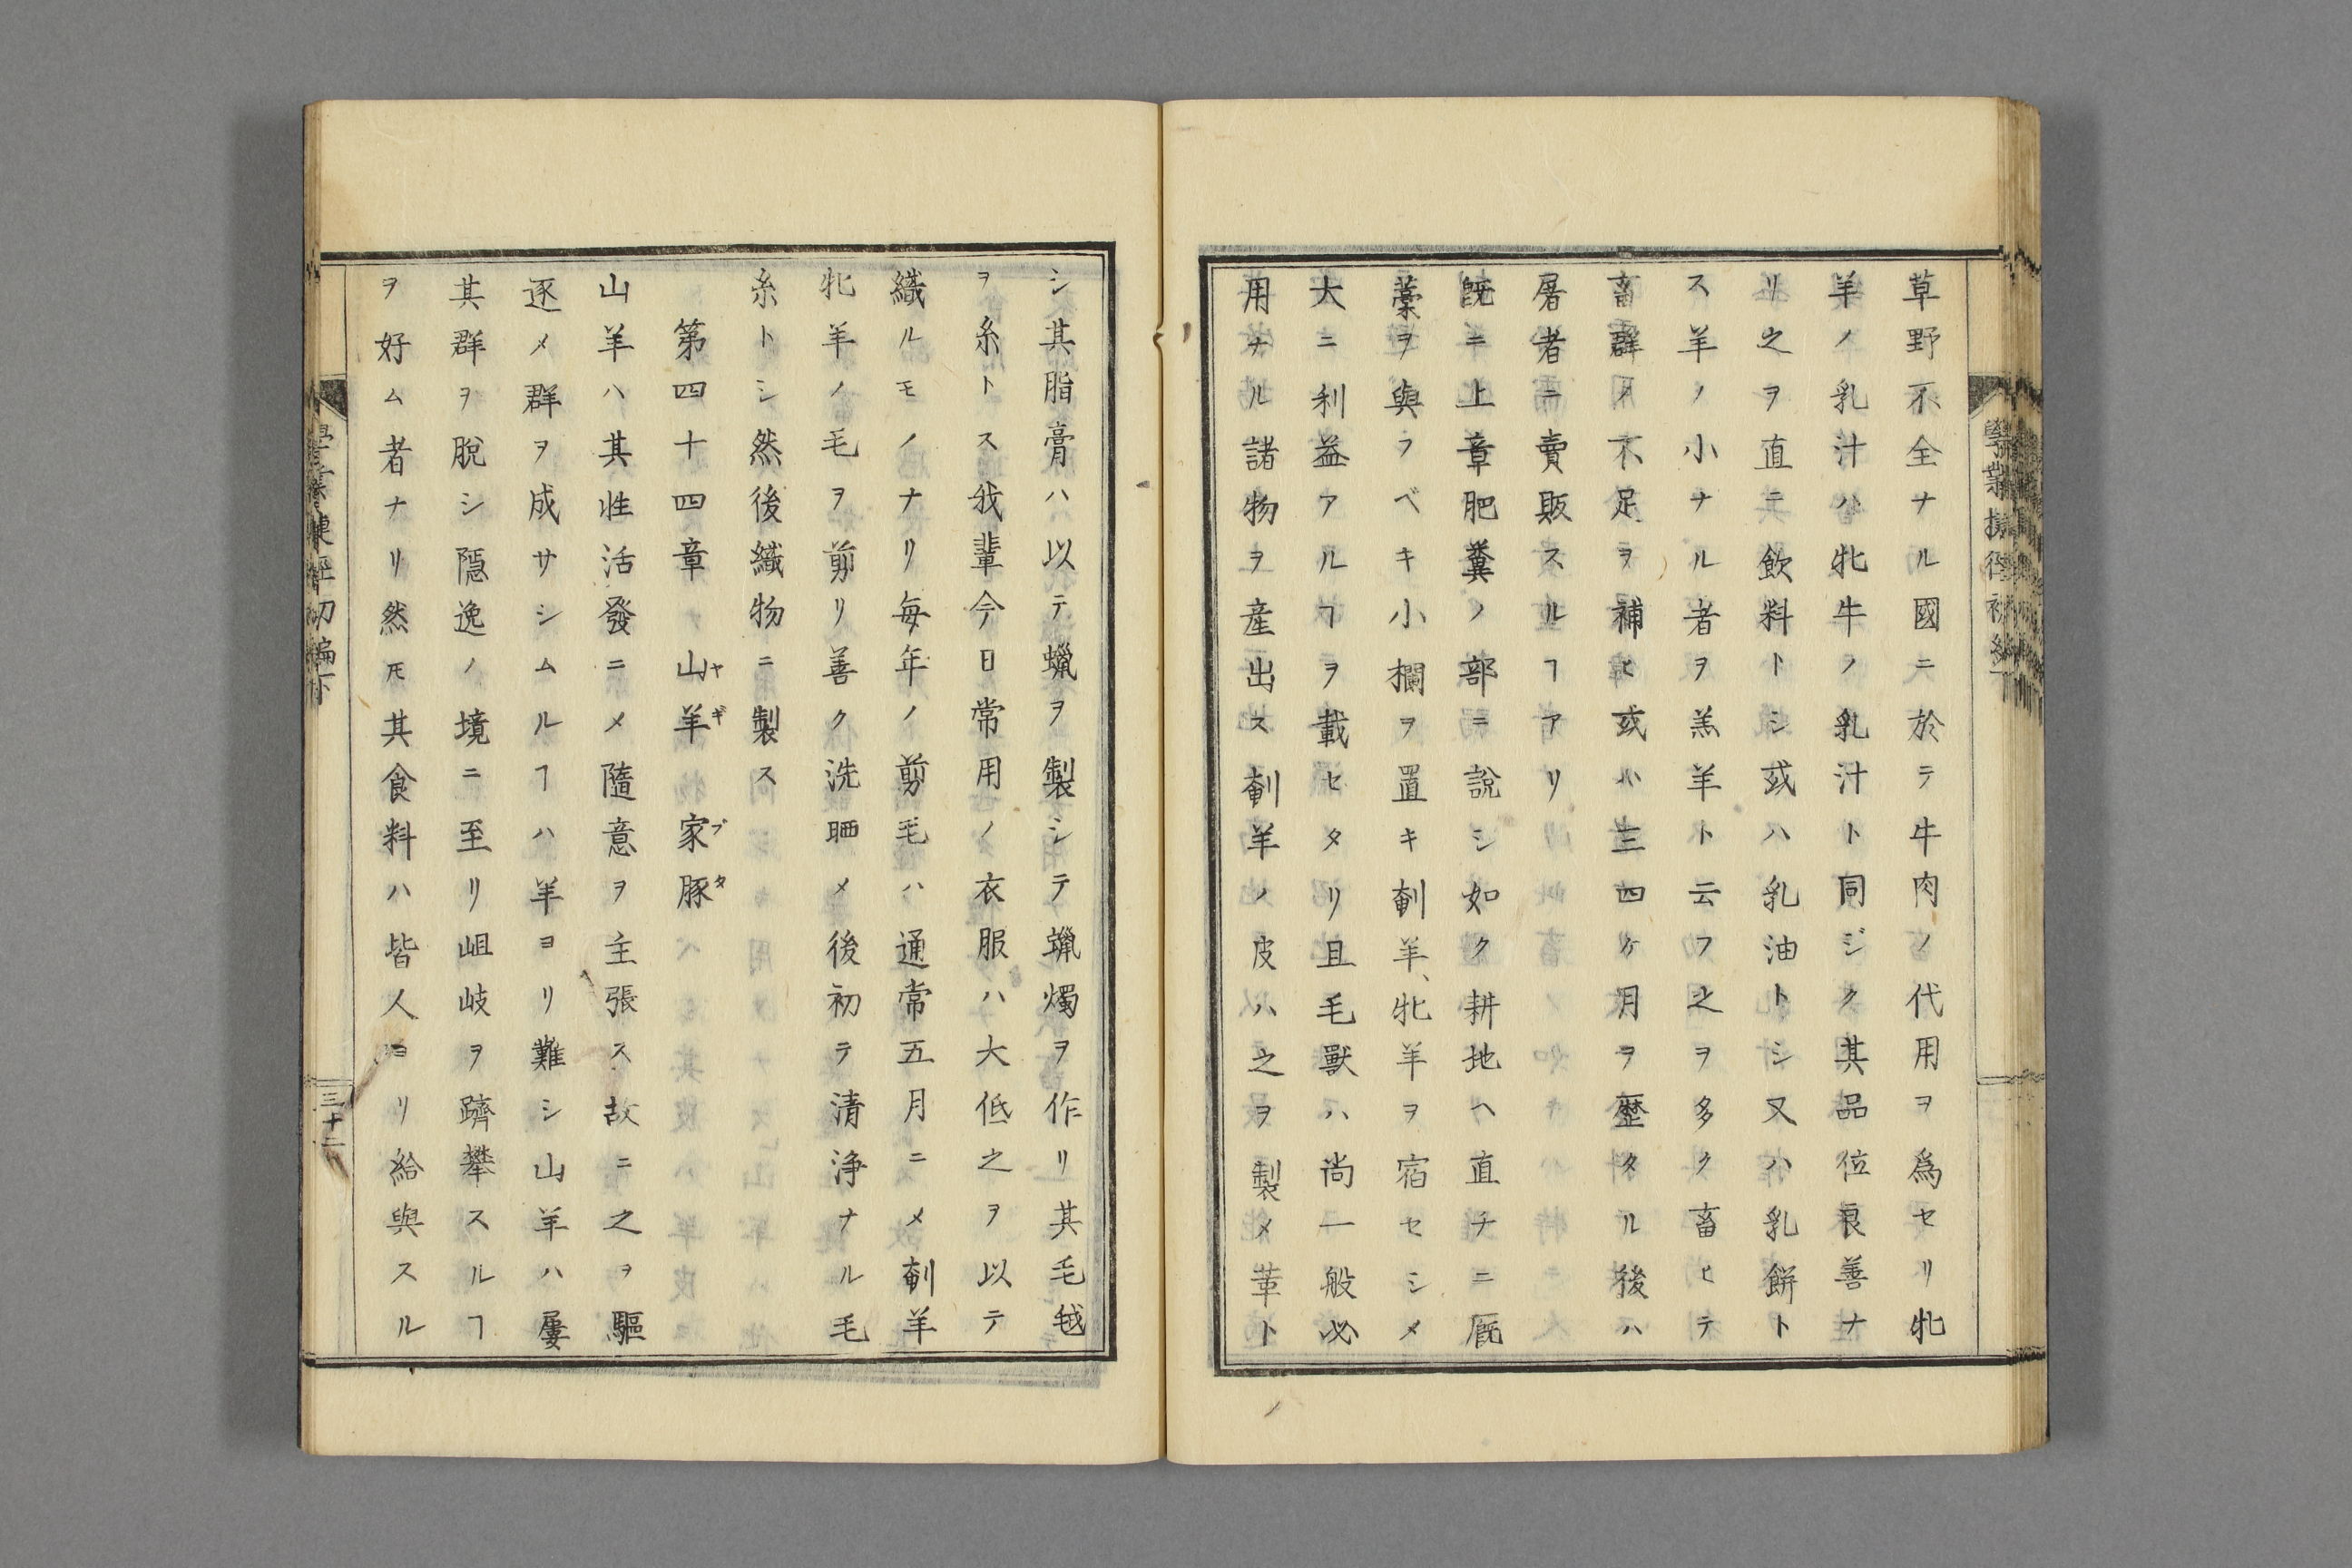 草野不全ナル國ニ於テ牛肉ノ代用ヲ爲セリ牝
羊ノ乳汁ハ牝牛ノ乳汁ト同ジク其品位良善ナ
リ之ヲ直ニ飲料トシ或ハ乳油トシ又ハ乳餅ト
ス羊ノ小ナル者ヲ羔羊ト云フ之ヲ多ク畜ヒテ
畜群ノ不足ヲ補ヒ或ハ三四ケ月ヲ歴タル後ハ
屠者ニ賣販スルヿアリ
既ニ上章肥糞ノ部ニ說シ如ク耕地ヘ直チニ厩
藁ヲ與フベキ小欄ヲ置キ剦羊、牝羊ヲ宿セシメ
大ニ利益アルヿヲ載セタリ且毛獸ハ尚一般必
用ナル諸物ヲ産出ス剦羊ノ皮ハ之ヲ製メ革ト
シ其脂膏ハ以テ蠟ヲ製シテ蠟燭ヲ作リ其毛毧
ヲ糸トス我輩今日常用ノ衣服ハ大低之ヲ以テ
織ルモノナリ毎年ノ剪毛ハ通常五月ニメ剦羊
牝羊ノ毛ヲ剪リ善ク洗晒メ後初テ清浄ナル毛
糸トシ然後織物ニ製ス
第四十四章 山羊 家豚
ヤギ ブタ
山羊ハ其性活發ニメ隨意ヲ主張ス故ニ之ヲ驅
逐メ群ヲ成サシムルヿハ羊ヨリ難シ山羊ハ屢
其群ヲ脫シ隠逸ノ境ニ至リ岨岐ヲ躋攀スルヿ
ヲ好ム者ナリ然𪜈其食料ハ皆人ヨリ給與スル
初編下
三十二